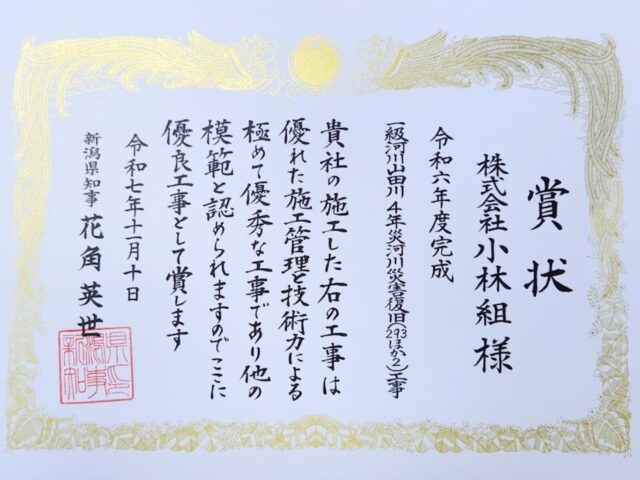 賞状
株式会社小林組 様
令和六年度完成
一級河川山田川4年災河川災害復旧(293ほか2)工事
貴社の施工した右の工事は
優れた施工管理と技術力による
極めて優秀な工事であり他の
模範と認められますのでここに
優良工事として賞します
令和七年十一月十日
新潟県知事 花角英世
新潟県知事之印